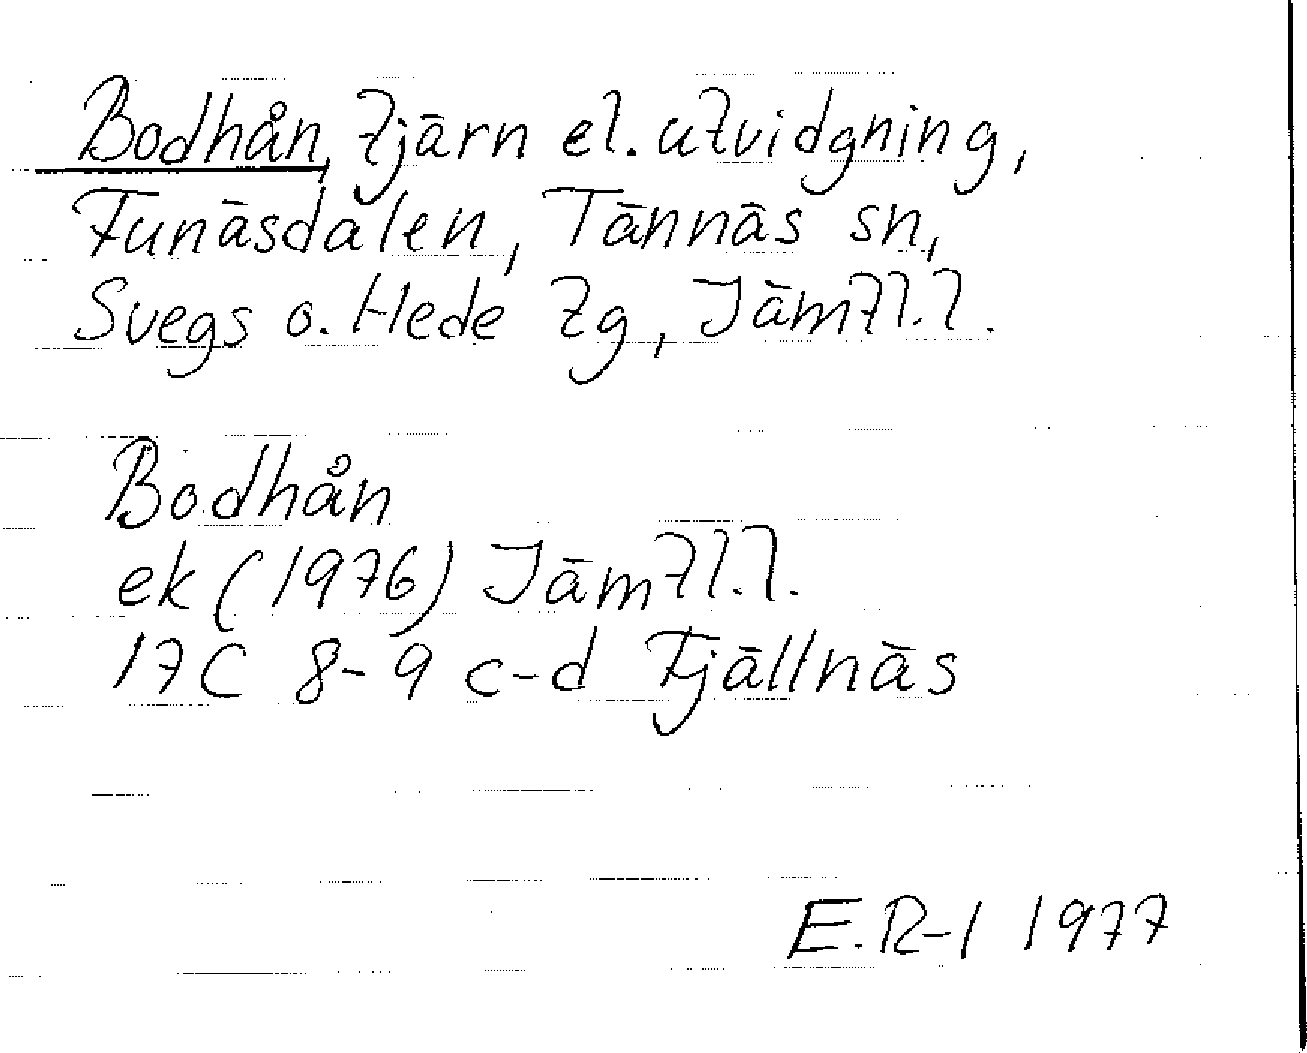 Bodhån, tjärn el. utvidgning,
Funäsdalen, Tännäs sn,
Svegs o. Hede tg, Jämtl.l.
Bodhån
ek (1976) Jämtl.l.
17C 8-9 c-d Fjällnäs
E.R-l 1977